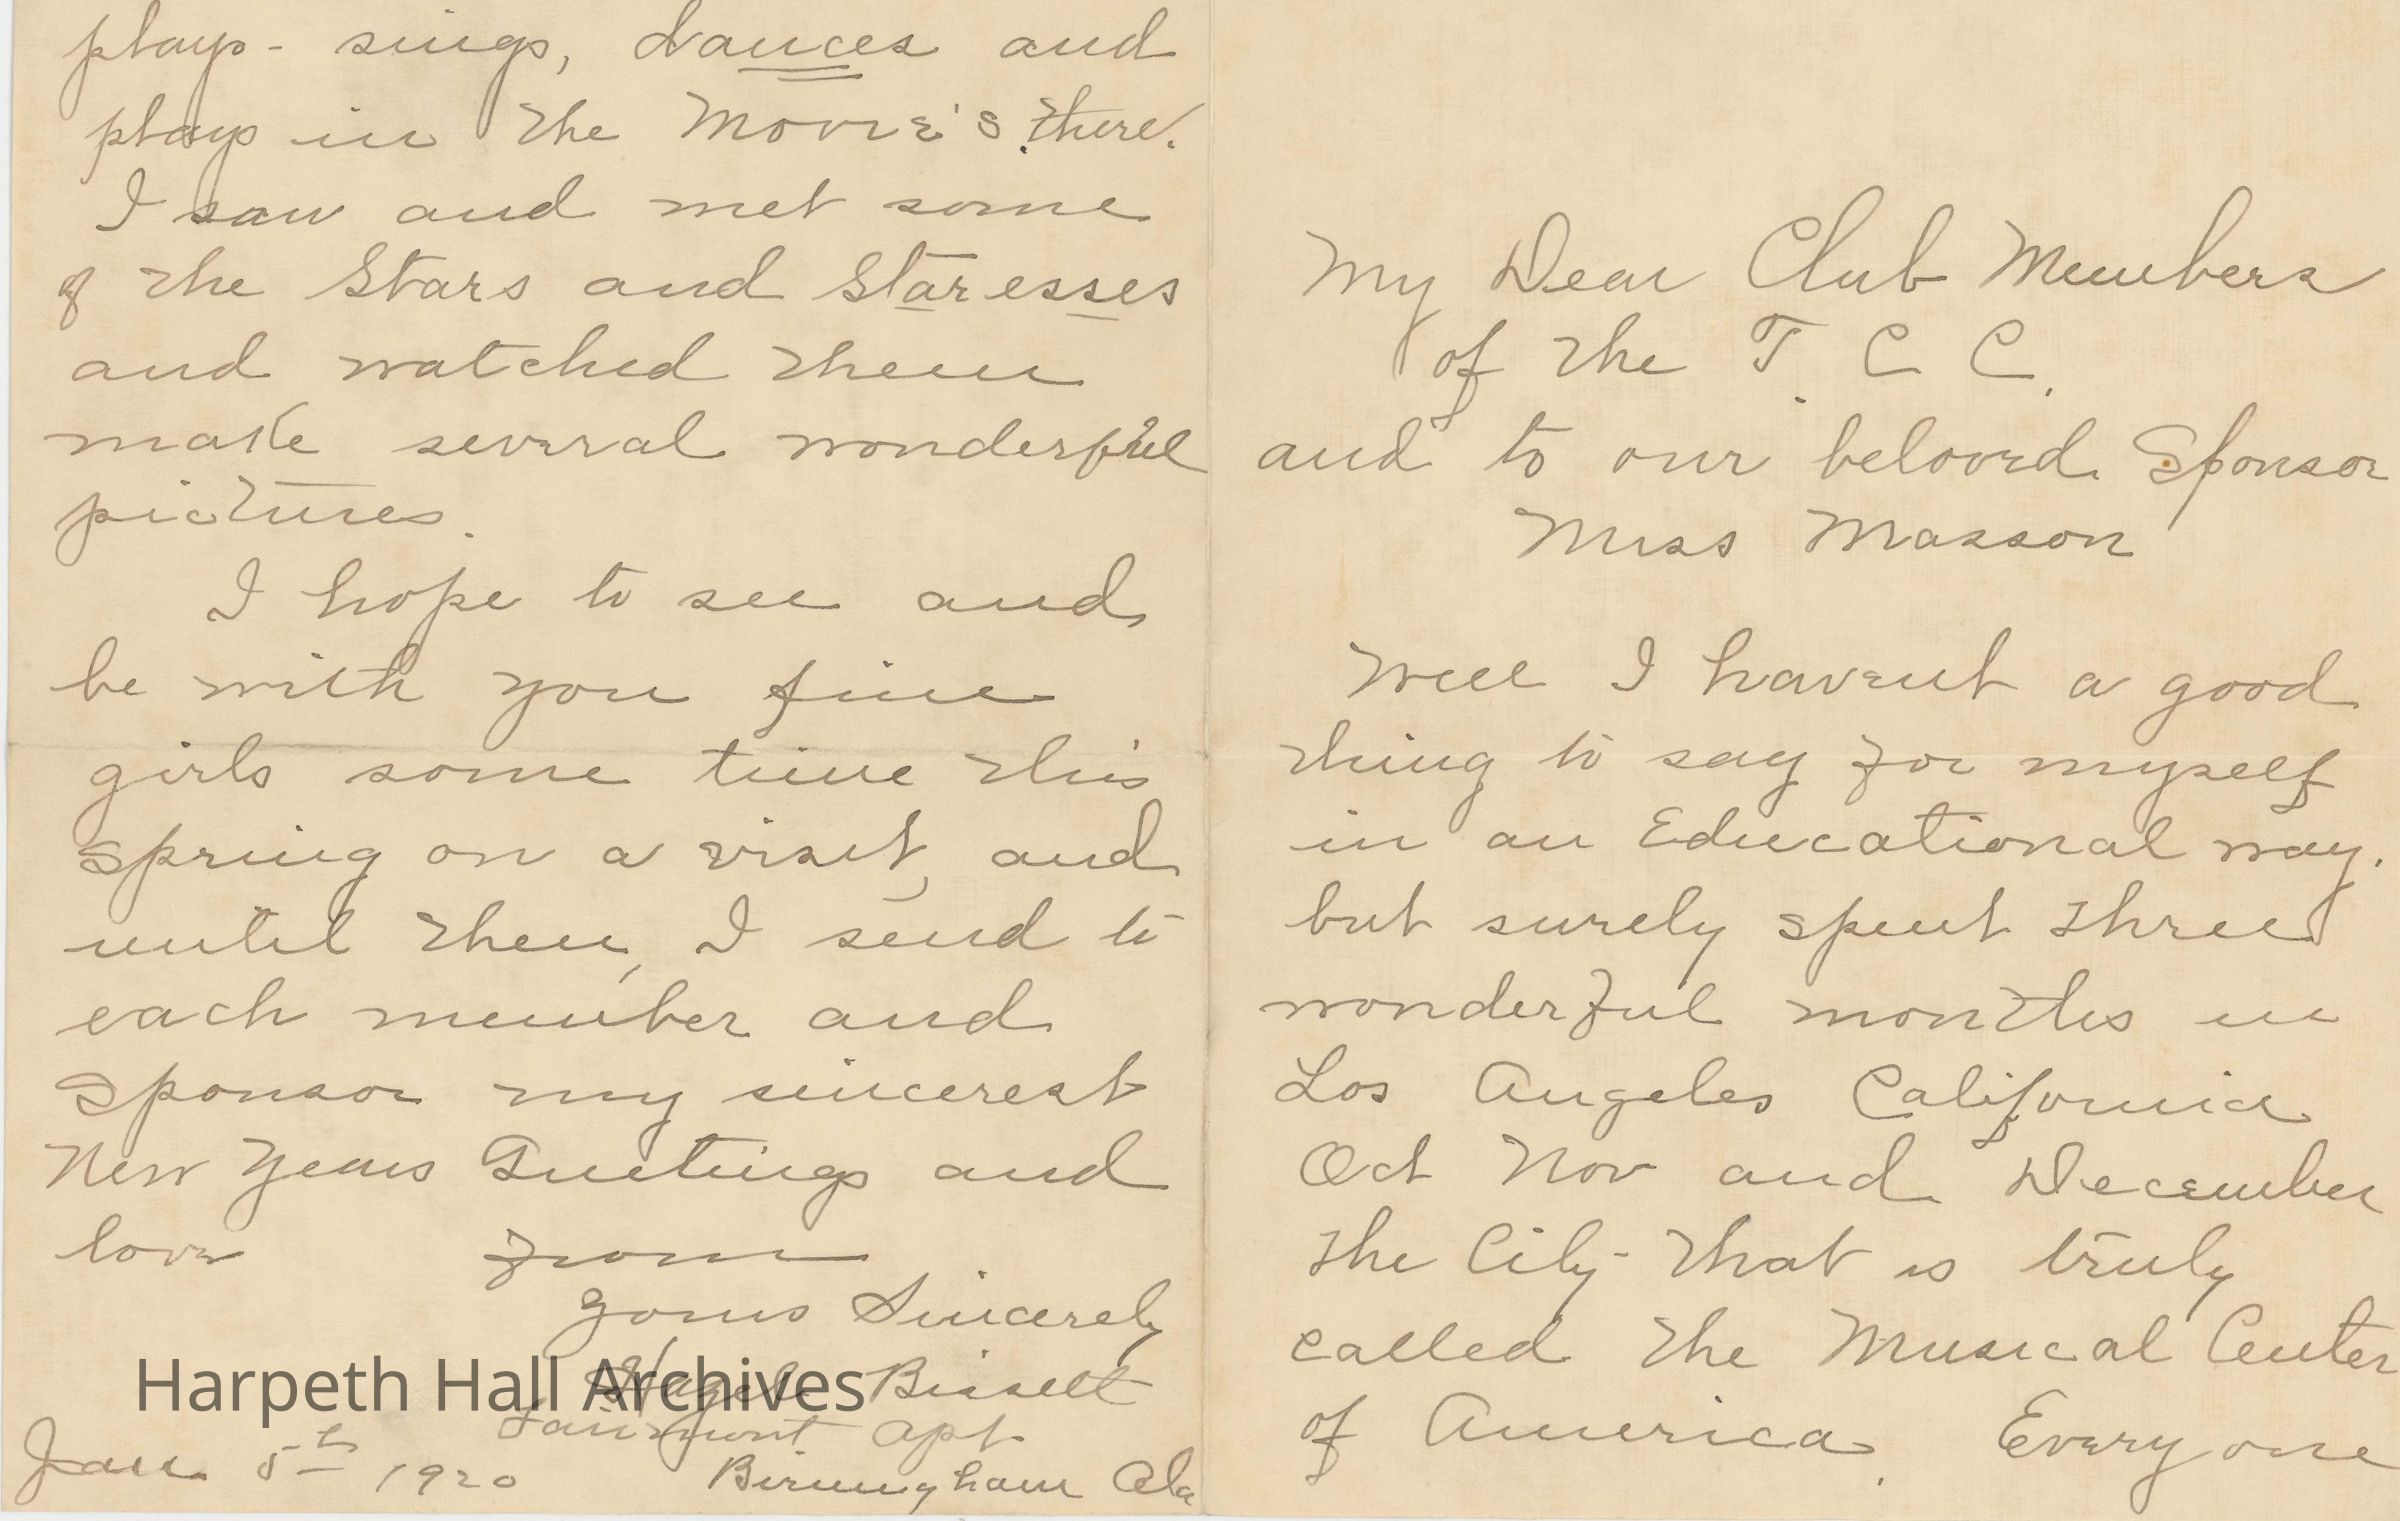 My Dear Club Members
of the T. C C.
and to our beloved Sponsor
Miss Masson
Well I havent a good
thing to say for myself
in an Educational way.
but surely spent three
wonderful months in
Los Angeles California
Oct Nov and December
The City - that is truly
called the Musical Center
of America. Every one
plays - sings, dances and
plays in the Movie's there.
I saw and met some
of the Stars and Staresses
and watched them
make several wonderful
pictures.
I hope to see and
be with you fine
girls some time this
spring on a visit, and
until then, I send to
each member and
Sponsor my sincerest
New Years Greetings and
love from
Yours Sincerely
Hazel Bissett
Fairmont Apt
Jan. 5th 1920 Birmingham Ala
Harpeth Hall Archives